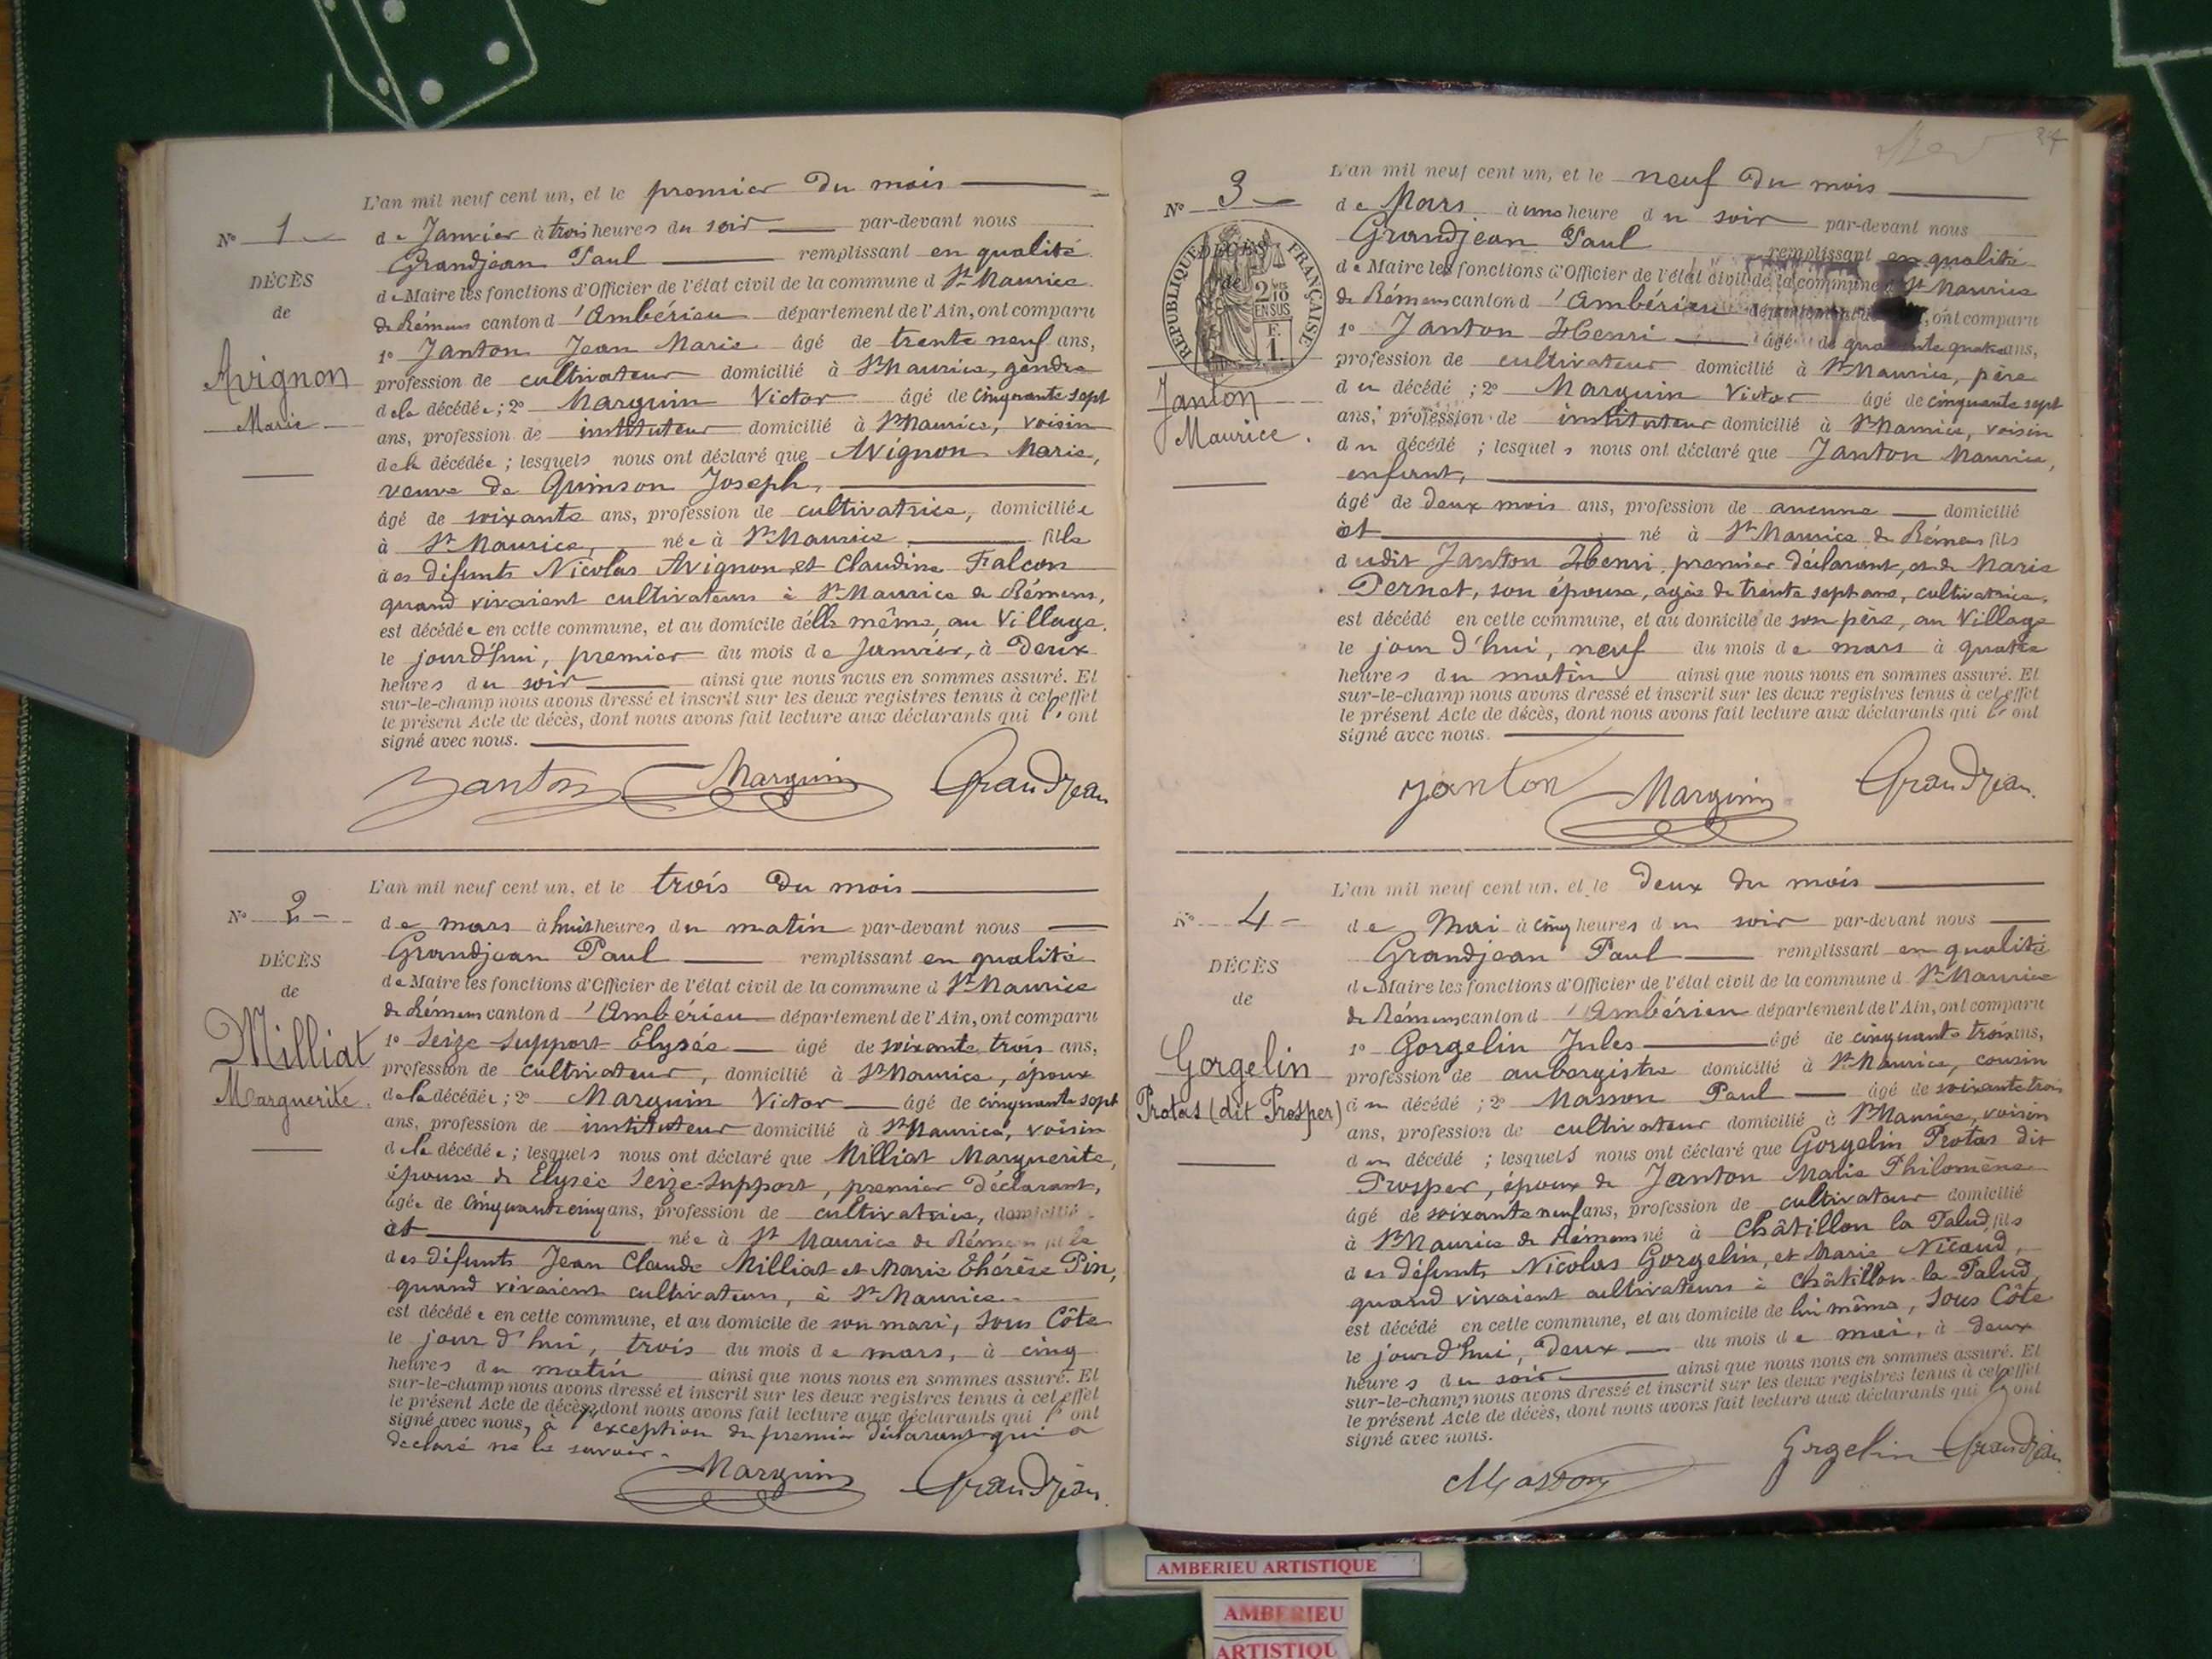 L'an mil neuf cent un, et le premier du mois
N° 1
de Janvier à trois heures du soir par-devant nous
Grandjean Paul remplissant en qualité
DÉCÈS
de Maire les fonctions d'Officier de l'état civil de la commune d St Maurice
de
de Rémens canton d'Ambérieu département de l'Ain, ont comparu
1° Janton Jean Marie âgé de trente neuf ans,
Avignon
profession de cultivateur domicilié à St Maurice, gendre
Marie
de la décédée; 2° Marguin Victor âgé de cinquante sept
ans, profession de instituteur domicilié à St Maurice, voisin
de la décédée; lesquels nous ont déclaré que Avignon Marie,
veuve de Quinson Joseph,
âgé de soixante ans, profession de cultivatrice, domiciliée
à St Maurice, née à St Maurice fille
des défunts Nicolas Avignon et Claudine Falcon
quand vivaient cultivateurs à St Maurice de Rémens,
est décédée en cette commune, et au domicile d'elle même, au Village.
le jourd'hui, premier du mois de Janvier, à Deux
heures du soir ainsi que nous nous en sommes assuré. Et
sur-le-champ nous avons dressé et inscrit sur les deux registres tenus à cet effet
le présent Acte de décès, dont nous avons fait lecture aux déclarants qui l'ont
signé avec nous.
Janton Marguin Grandjean
L'an mil neuf cent un, et le trois du mois
N° 2
de mars à huit heures du matin par-devant nous
Grandjean Paul remplissant en qualité
DÉCÈS
de Maire les fonctions d'Officier de l'état civil de la commune d St Maurice
de
de Rémens canton d'Ambérieu département de l'Ain, ont comparu
Milliat
1° Seize-Support Elysée âgé de soixante trois ans,
profession de cultivateur, domicilié à St Maurice, époux
Marguerite.
de la décédée; 2° Marguin Victor âgé de cinquante sept
ans, profession de instituteur domicilié à St Maurice, voisin
de la décédée; lesquels nous ont déclaré que Milliat Marguerite,
épouse de Elysée Seize-Support, premier déclarant,
âgée de cinquante cinq ans, profession de cultivatrice, domicilié
et née à St Maurice de Rémens fille
des défunts Jean Claude Milliat et Marie Thérèse Pin,
quand vivaient cultivateurs, à St Maurice
est décédée en cette commune, et au domicile de son mari, Sous Côte
le jour d'hui, trois du mois de mars, à cinq
heures du matin ainsi que nous nous en sommes assuré. Et
sur-le-champ nous avons dressé et inscrit sur les deux registres tenus à cet effet
le présent Acte de décès, dont nous avons fait lecture aux déclarants qui l'ont
signé avec nous, à l'exception du premier déclarant qui a
déclaré ne le savoir.
Marguin Grandjean
37
L'an mil neuf cent un, et le neuf du mois
N° 3
de Mars à une heure du soir par-devant nous
Grandjean Paul remplissant en qualité
RÉPUBLIQUE FRANÇAISE
DÉCÈS
de
2/10 EN SUS
F. 1.
de Maire les fonctions d'Officier de l'état civil de la commune St Maurice
de Rémens canton d'Ambérieu département de, ont comparu
1° Janton Henri âgé de quarante quatre ans,
profession de cultivateur domicilié à St Maurice, père
Janton
du décédé; 2° Marguin Victor âgé de cinquante sept
Maurice.
ans, profession de instituteur domicilié à St Maurice, voisin
du décédé; lesquels nous ont déclaré que Janton Maurice,
enfant,
âgé de deux mois ans, profession de aucune domicilié
et né à St Maurice de Rémens fils
dudit Janton Henri, premier déclarant, et de Marie
Pernet, son épouse, agée de trente sept ans, cultivatrice,
est décédé en cette commune, et au domicile de son père, au Village
le jour d'hui, neuf du mois de mars à quatre
heures du matin ainsi que nous nous en sommes assuré. Et
sur-le-champ nous avons dressé et inscrit sur les deux registres tenus à cet effet
le présent Acte de décès, dont nous avons fait lecture aux déclarants qui l'ont
signé avec nous.
Janton Marguin Grandjean
L'an mil neuf cent un, et le Deux du mois
N° 4
de Mai à cinq heures du soir par-devant nous
Grandjean Paul remplissant en qualité
DÉCÈS
de Maire les fonctions d'Officier de l'état civil de la commune d St Maurice
de
de Rémens canton d'Ambérieu département de l'Ain, ont comparu
1° Gorgelin Jules âgé de cinquante trois ans,
Gorgelin
profession de aubergiste domicilié à St Maurice, cousin
Protas (dit Prosper)
du décédé; 2° Masson Paul âgé de soixante trois
ans, profession de cultivateur domicilié à St Maurice, voisin
du décédé; lesquels nous ont déclaré que Gorgelin Protas dit
Prosper, époux de Janton Marie Philomène
âgé de soixante neuf ans, profession de cultivateur domicilié
à St Maurice de Rémens né à Châtillon la Palud, fils
des défunts Nicolas Gorgelin, et Marie Nicaud,
quand vivaient cultivateurs à Châtillon-la-Palud
est décédé en cette commune, et au domicile de lui même, Sous Côte
le jourd'hui, Deux du mois de mai, à deux
heures du soir ainsi que nous nous en sommes assuré. Et
sur-le-champ nous avons dressé et inscrit sur les deux registres tenus à cet effet
le présent Acte de décès, dont nous avons fait lecture aux déclarants qui l'ont
signé avec nous.
Masson Gorgelin Grandjean
AMBERIEU ARTISTIQUE
AMBERIEU
ARTISTIQU